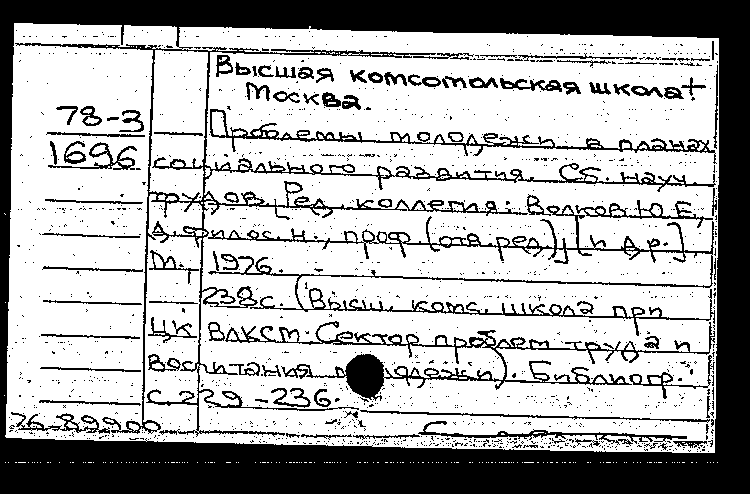 Высшая комсомольская школа†
Москва.
78-3 Проблемы молодежи в планах
1696 социального развития. Сб. науч.
трудов. [Ред. коллегия: Волков Ю.Е.,
д.филос.н., проф. (отв.ред.)] [и др.]
М., 1976.
238с. (Высш. комс. школа при
ЦК ВЛКСМ. Сектор проблем труда и
воспитания молодежи). Библиогр.:
с.229-236.
76-89900